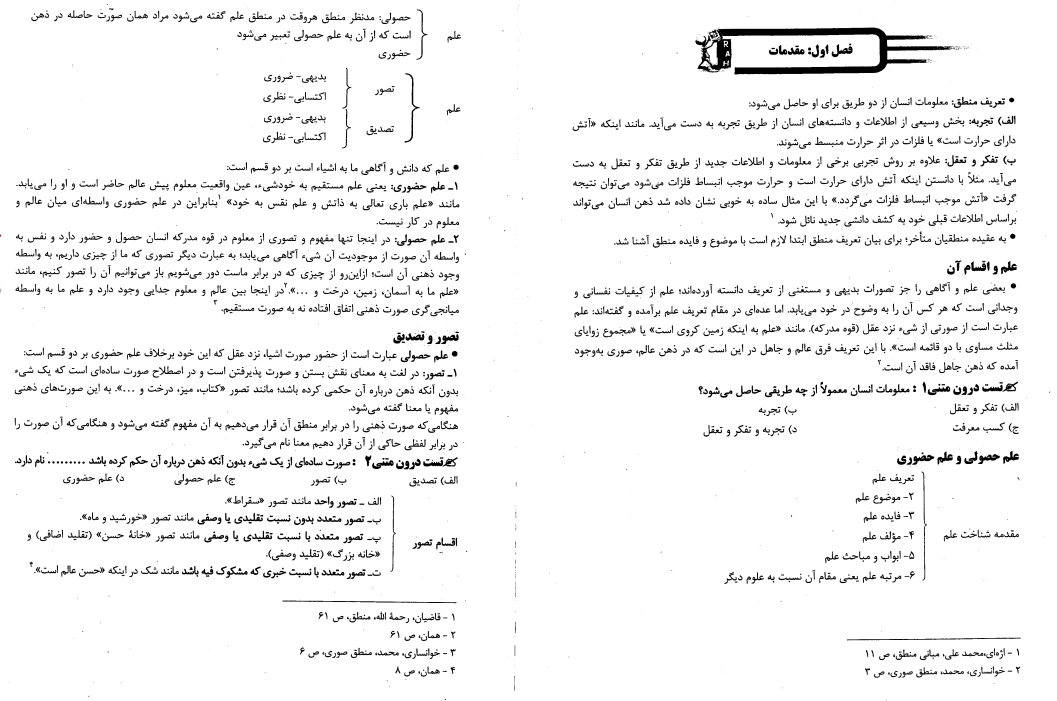 فصل اول: مقدمات
RAH
• تعریف منطق: معلومات انسان از دو طریق برای او حاصل می‌شود:
الف) تجربه: بخش وسیعی از اطلاعات و دانسته‌های انسان از طریق تجربه به دست می‌آید. مانند اینکه «آتش
دارای حرارت است» یا فلزات در اثر حرارت منبسط می‌شوند.
ب) تفکر و تعقل: علاوه بر روش تجربی برخی از معلومات و اطلاعات جدید از طریق تفکر و تعقل به دست
می‌آید. مثلاً با دانستن اینکه آتش دارای حرارت است و حرارت موجب انبساط فلزات می‌شود می‌توان نتیجه
گرفت «آتش موجب انبساط فلزات می‌گردد.» با این مثال ساده به خوبی نشان داده شد ذهن انسان می‌تواند
براساس اطلاعات قبلی خود به کشف دانشی جدید نائل شود. ۱
• به عقیده منطقیان متأخر؛ برای بیان تعریف منطق ابتدا لازم است با موضوع و فایده منطق آشنا شد.
علم و اقسام آن
• بعضی علم و آگاهی را جز تصورات بدیهی و مستغنی از تعریف دانسته آورده‌اند؛ علم از کیفیات نفسانی و
وجدانی است که هر کس آن را به وضوح در خود می‌یابد. اما عده‌ای در مقام تعریف علم برآمده و گفته‌اند: علم
عبارت است از صورتی از شیء نزد عقل (قوه مدرکه). مانند «علم به اینکه زمین کروی است» یا «مجموع زوایای
مثلث مساوی با دو قائمه است». با این تعریف فرق عالم و جاهل در این است که در ذهن عالم، صوری به‌وجود
آمده که ذهن جاهل فاقد آن است. ۲
تست درون متنی۱ : معلومات انسان معمولاً از چه طریقی حاصل می‌شود؟
الف) تفکر و تعقل ب) تجربه
ج) کسب معرفت د) تجربه و تفکر و تعقل
علم حصولی و علم حضوری
مقدمه شناخت علم
تعریف علم
۲- موضوع علم
۳- فایده علم
۴- مؤلف علم
۵- ابواب و مباحث علم
۶- مرتبه علم یعنی مقام آن نسبت به علوم دیگر
۱ - اژه‌ای،محمد علی، مبانی منطق، ص ۱۱
۲ - خوانساری، محمد، منطق صوری، ص ۳
علم
حصولی: مدنظر منطق هروقت در منطق علم گفته می‌شود مراد همان صورت حاصله در ذهن
است که از آن به علم حصولی تعبیر می‌شود
حضوری
علم
تصور
بدیهی- ضروری
اکتسابی- نظری
تصدیق
بدیهی- ضروری
اکتسابی- نظری
• علم که دانش و آگاهی ما به اشیاء است بر دو قسم است:
۱ـ علم حضوری: یعنی علم مستقیم به خودشیء، عین واقعیت معلوم پیش عالم حاضر است و او را می‌یابد.
مانند «علم باری تعالی به ذاتش و علم نفس به خود» ۱ بنابراین در علم حضوری واسطه‌ای میان عالم و
معلوم در کار نیست.
۲ـ علم حصولی: در اینجا تنها مفهوم و تصوری از معلوم در قوه مدرکه انسان حصول و حضور دارد و نفس به
واسطه آن صورت از موجودیت آن شیء آگاهی می‌یابد؛ به عبارت دیگر تصوری که ما از چیزی داریم، به واسطه
وجود ذهنی آن است؛ ازاین‌رو از چیزی که در برابر ماست دور می‌شویم باز می‌توانیم آن را تصور کنیم، مانند
«علم ما به آسمان، زمین، درخت و ...». ۲ در اینجا بین عالم و معلوم جدایی وجود دارد و علم ما به واسطه
میانجی‌گری صورت ذهنی اتفاق افتاده نه به صورت مستقیم. ۳
تصور و تصدیق
• علم حصولی عبارت است از حضور صورت اشیا، نزد عقل که این خود برخلاف علم حضوری بر دو قسم است:
۱ـ تصور: در لغت به معنای نقش بستن و صورت پذیرفتن است و در اصطلاح صورت ساده‌ای است که یک شیء
بدون آنکه ذهن درباره آن حکمی کرده باشد؛ مانند تصور «کتاب، میز، درخت و ...». به این صورت‌های ذهنی
مفهوم یا معنا گفته می‌شود.
هنگامی‌که صورت ذهنی را در برابر منطق آن قرار می‌دهیم به آن مفهوم گفته می‌شود و هنگامی‌که آن صورت را
در برابر لفظی حاکی از آن قرار دهیم معنا نام می‌گیرد.
تست درون متنی۲ : صورت ساده‌ای از یک شیء بدون آنکه ذهن درباره آن حکم کرده باشد ......... نام دارد.
الف) تصدیق ب) تصور ج) علم حصولی د) علم حضوری
اقسام تصور
الف ـ تصور واحد مانند تصور «سقراط».
ب‌ـ تصور متعدد بدون نسبت تقلیدی یا وصفی مانند تصور «خورشید و ماه».
پ‌ـ تصور متعدد با نسبت تقلیدی یا وصفی مانند تصور «خانهٔ حسن» (تقلید اضافی) و
«خانه بزرگ» (تقلید وصفی).
ت‌ـ تصور متعدد با نسبت خبری که مشکوک فیه باشد مانند شک در اینکه «حسن عالم است». ۴
۱ - قاضیان، رحمة الله، منطق، ص ۶۱
۲ - همان، ص ۶۱
۳ - خوانساری، محمد، منطق صوری، ص ۶
۴ - همان، ص ۸